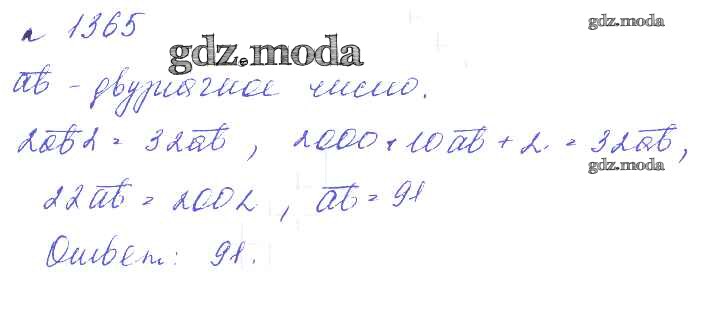 n 1365
gdz.moda
gdz.moda
a̅b̅ - двузначное число.
2a̅b̅2 = 32a̅b̅, 2000 + 10a̅b̅ + 2 = 32a̅b̅,
gdz.moda
22a̅b̅ = 2002, a̅b̅ = 91
Ответ: 91.